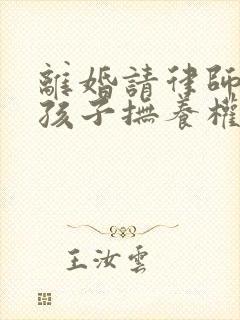 離婚請律師
孩子撫養權
王汝雲